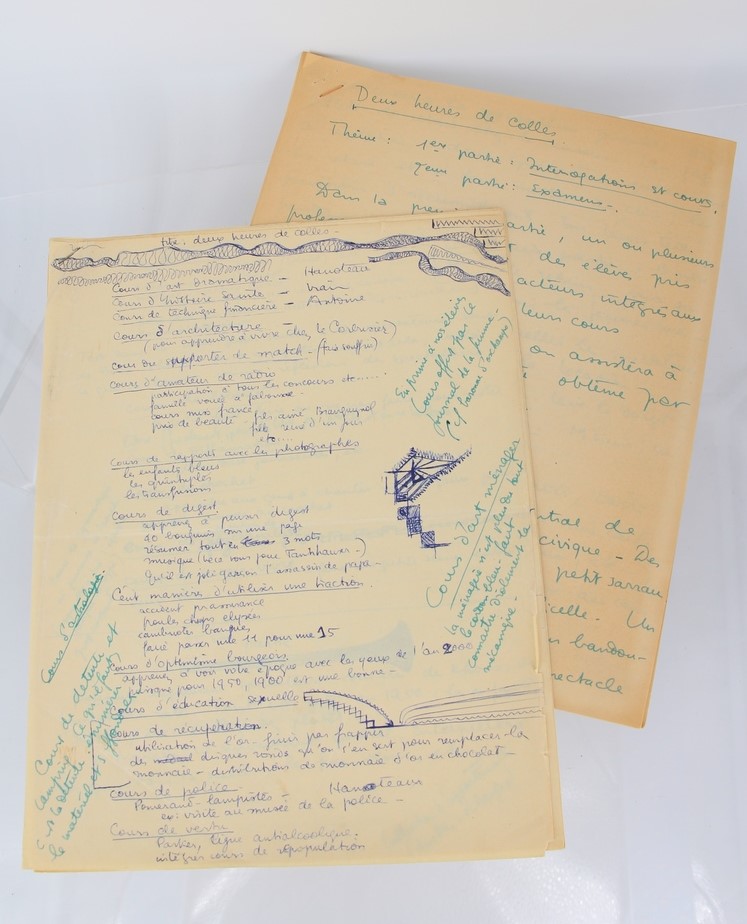 Deux heures de colles.
Thème : 1er partie : Interrogations et cours.
2eme partie : Examens.
Dans la première partie, un ou plusieurs
des élève pris
acteurs intégrés aux
leurs cours
on assistera à
obtenu par
de
civique – Des
petit sarrau
ficelle. Un
bandon-
spectacle
titre. deux heures de colles –
Cours d'art dramatique – Hanoteau
Cours d'histoire Sainte – Vrain
Cours de technique financière – Antoine
Cours d'architecture –
(pour apprendre à vivre chez le Corbusier)
Cours du supporter de match. (faire souffrir)
Cours d'amateur de radio
participation à tous les concours etc.....
famille vouée à
cours mix france
prix de beauté – fils aimé Bourguignol
fille reine d'un jour
etc....
Cours de rapports avec les photographes
les enfants bleus
les quintuplés
les transfusions
Cours de digest
apprenez à penser digest
20 bouquins sur une page
résumer tout en 3 mots
musique (Wece vous pour Tannhauser –)
Qu'il est joli garçon l'assassin de papa –
Cent manière d'utiliser une traction.
accident assurance
poules champs elysées
cambriolés banques
faire passer une 11 pour une 15
Cours d'optimisme bourgeois.
apprenez à voir votre époque avec les yeux de l'an 2000
puisque pour 1950, 1900 est une bonne –
Cours d'éducation sexuelle
Cours de récupération.
utilisation de l'or. finir par frapper
des disques ronds qu'on s'en sert pour remplacer la
monnaie – distributions de monnaie d'or en chocolat –
Cours de police – Hanoteau
Pomerand – lampistes –
ex : visite au musée de la police –
Cours de vertu
Parker, ligue antialcoolique.
intégrer cours de repopulation
En prime à nos élèves
Cours offert par le
journal de la femme.
(cf barème d'arbouze)
Cours d'art ménager
la ménagère n'est plus du tout
le cordon bleu – faut
connaître d'abord la
mécanique.
Cours d'astrologie.
Cours de détente et
camping. Ce qu'il faut
c'est la détente, supprimer
le matériel et s'